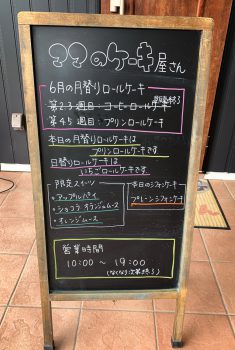 ママのケーキ屋さん
6月の月替りロールケーキ
第2.3週目:コーヒーロールケーキ
第4.5週目:プリンロールケーキ
本日の月替りロールケーキは
プリンロールケーキです
日替りロールケーキは
いちごロールケーキです
限定スイーツ
・アップルパイ
・ショコラオランジュムース
・オレンジムース
本日のシフォンケーキ
プレーンシフォンケーキ
営業時間
10:00 ~ 19:00
(なくなり次第終了)